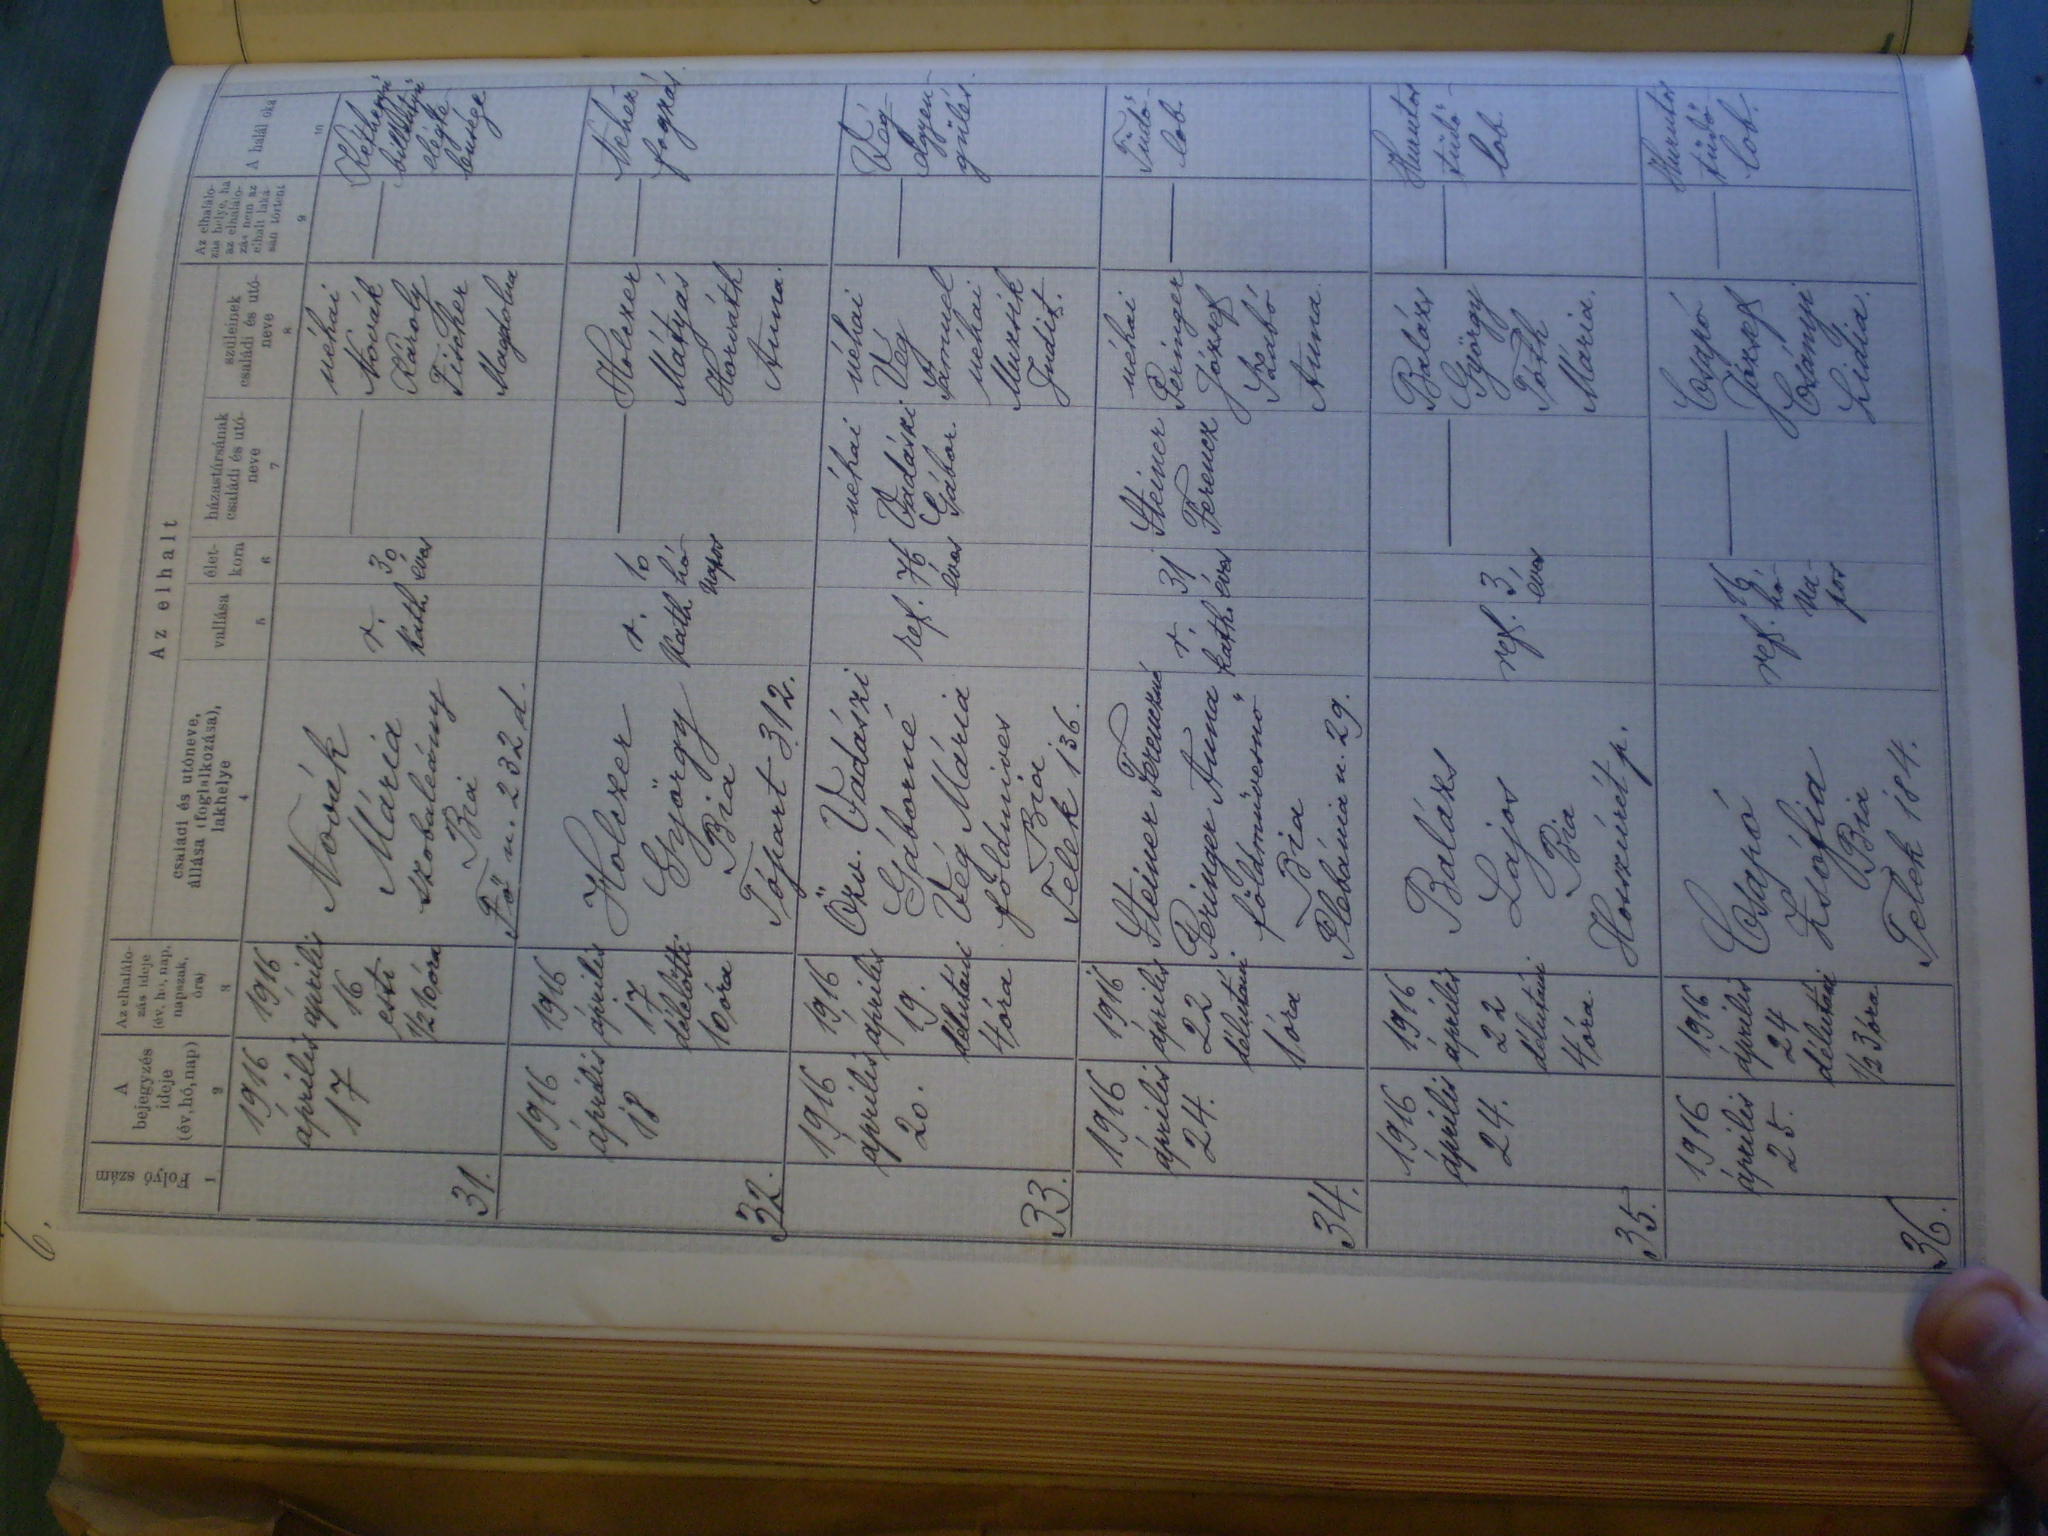 6.
Az elhalt
Folyó szám
A
bejegyzés
ideje
(év, hó, nap)
Az elhaláló-
zás ideje
(év, hó, nap,
napszak,
óra)
családi és utóneve,
állása (foglalkozása),
lakhelye
vallása
élet-
kora
házastársának
családi és utó-
neve
szüleinek
családi és utó-
neve
Az elhaláló-
zás helye, ha
az elhaláló-
zás nem az
elhalt laká-
sán történt
A halál oka
1
2
3
4
5
6
7
8
9
10
31.
1916
április
17
1916
április
16
esti
½ 10 óra
Novák
Mária
szobaleány
Bia
Fő u. 232 d.
r.
kath.
30
éves
néhai
Novák
Károly
Fischer
Magdolna
Kéthegyű
billentyű
elégte-
lensége
32.
1916
április
18
1916
április
17
délelőtti
10 óra
Holczer
György
Bia
Tópart 312.
r.
kath.
10
hó-
napos
Holczer
Mátyás
Horváth
Anna.
Nehéz
fogzás.
33.
1916
április
20.
1916
április
19.
délutáni
4 óra
Özv. Vadászi
Gáborné
Vég Mária
földmíves
Bia
Telek 136.
ref.
76
éves
néhai
Vadászi
Gábor.
néhai
Vég
Sámuel
néhai
Muzsik
Judit.
Vég-
elgyen-
gülés.
34.
1916
április
24.
1916
április
22
délutáni
1 óra
Steiner Ferenczné
Peringer Anna
földmüvesnő
Bia
Plebánia u. 29.
r.
kath.
31
éves
Steiner
Ferencz
néhai
Peringer
József
Szabó
Anna.
Tüdő-
lob.
35.
1916
április
24.
1916
április
22
délutáni
4 óra.
Balázs
Lajos
Bia
Hosszúrét p.
ref.
3
éves
Balázs
György
Tóth
Mária.
Hurutos
tüdő-
lob.
36.
1916
április
25.
1916
április
24
délutáni
½ 3 óra
Csapó
Zsófia
Bia
Telek 184.
ref.
16
hó-
na-
pos
Csapó
József
Csányi
Lidia.
Hurutos
tüdő-
lob.